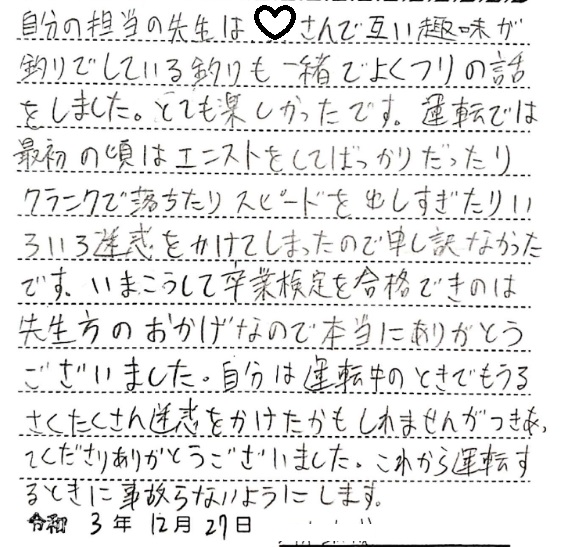 自分の担当の先生は♡さんで互い趣味が
釣りでしている釣りも一緒でよくつりの話
をしました。とても楽しかったです。運転では
最初の頃はエンストをしてばっかりだったり
クランクで落ちたりスピードを出しすぎたりい
ろいろ迷惑をかけてしまったので申し訳なかった
です。いまこうして卒業検定を合格できのは
先生方のおかげなので本当にありがとう
ございました。自分は運転中のときでもうる
さくたくさん迷惑をかけたかもしれませんがつきあっ
てくださりありがとうございました。これから運転す
るときに事故らないようにします。
令和 3年 12月 27日